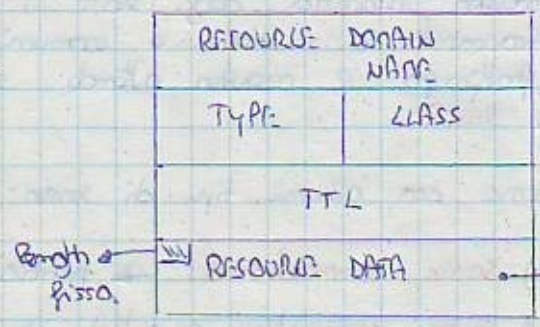 RESOURCE DOMAIN
NAME
TYPE CLASS
TTL
Length
fisso
RESOURCE DATA